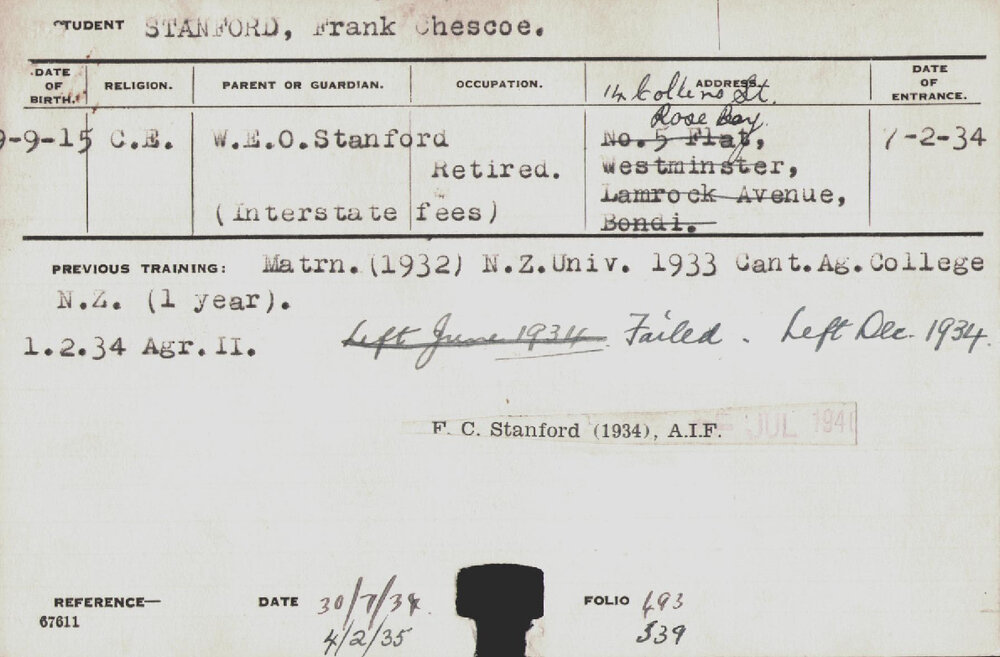 STUDENT STANFORD, Frank Chescoe.
DATE OF BIRTH. RELIGION. PARENT OR GUARDIAN. OCCUPATION. ADDRESS. DATE OF ENTRANCE.
14 Collins St.
Rose Bay.
9-9-15 C.E. W.E.O.Stanford No. 5 Flat, 1-2-34
Retired. Westminster,
Lamrock Avenue,
(Interstate fees) Bondi.
PREVIOUS TRAINING: Matrn.(1932) N.Z.Univ. 1933 Cant.Ag.College
N.Z. (1 year).
1.2.34 Agr.II. Left June 1934. Failed. Left Dec. 1934.
F. C. Stanford (1934), A.I.F. JUL 1940
REFERENCE— DATE 30/7/34 FOLIO 693
67611 4/2/35 539